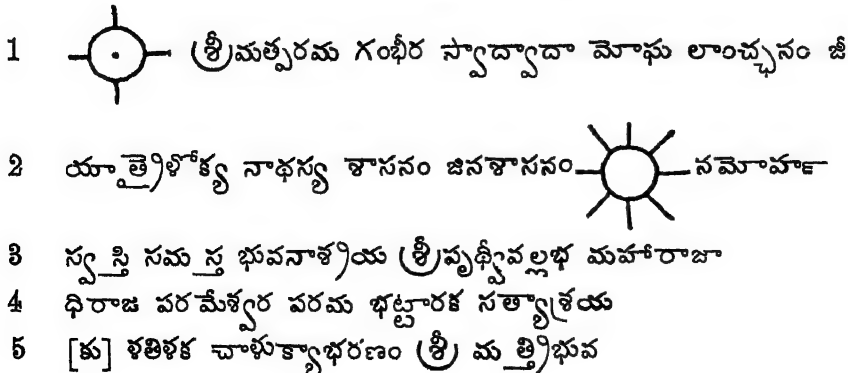 1 శ్రీమత్పరమ గంభీర స్వాద్వాదా మోఘ లాంచ్ఛనం జీ
2 యాత్త్రైళోక్య నాథస్య శాసనం జినశాసనం నమోహ౯
3 స్వస్తి సమస్త భువనాశ్రియ శ్రీపృథ్వీవల్లభ మహారాజా
4 ధిరాజ పరమేశ్వర పరమ భట్టారక సత్యాశ్రయ
5 [కు] ళతిళక చాళుక్యాభరణం శ్రీ మ త్త్రిభువ